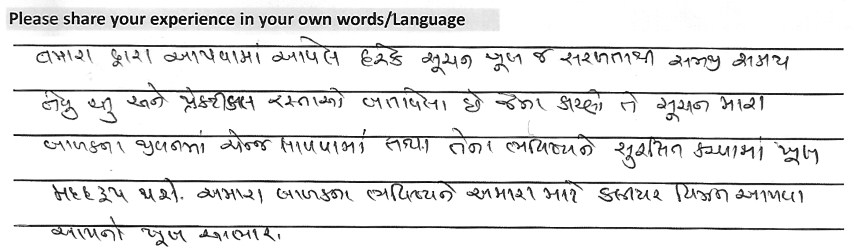 Please share your experience in your own words/Language
તમારા દ્વારા આપવામાં આવેલ દરેક સૂચન ખૂબ જ સરળતાથી સમજી શકાય
તેવું હતુ અને પ્રેક્ટીકલ રસ્તાઓ બતાવેલા છે જેના કારણે તે સૂચન મારા
બાળકના જીવનમાં ચેન્જ લાવવામાં તથા તેના ભવિષ્યને સુરક્ષિત કરવામાં ખૂબ
મદદરૂપ થશે. અમારા બાળકના ભવિષ્યને અમારા માટે ક્લીયર વિઝન આપવા
આપનો ખૂબ આભાર.